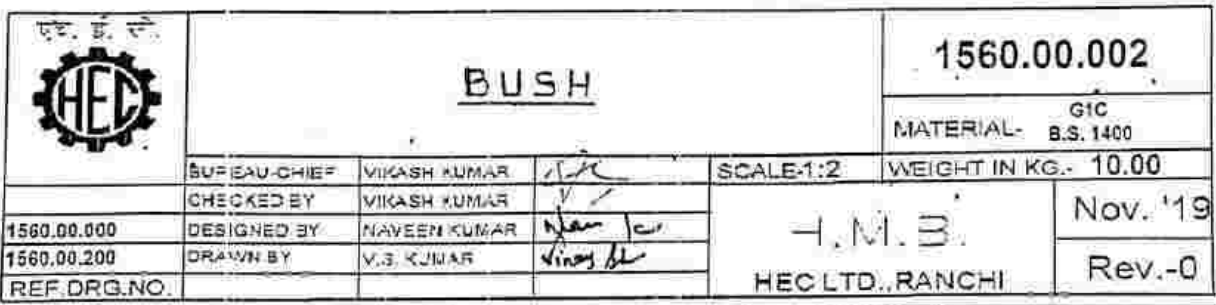 एच. ई. सी.
HEC
BUSH
1560.00.002
MATERIAL- G1C
B.S. 1400
BUREAU-CHIEF VIKASH KUMAR
SCALE-1:2
WEIGHT IN KG.- 10.00
CHECKED BY VIKASH KUMAR
1560.00.000 DESIGNED BY NAVEEN KUMAR
1560.00.200 DRAWN BY V.S. KUMAR
REF.DRG.NO.
H.M.B.
HEC LTD.,RANCHI
Nov. '19
Rev.-0